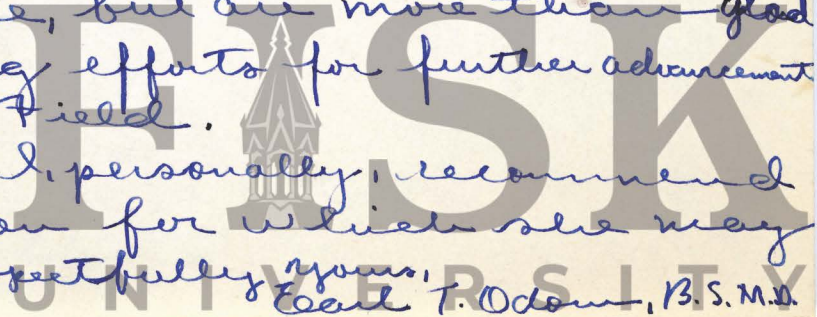 e, but are more than glad
g efforts for further advancement
Field.
I, personally, recommend
on for which she may
pectfully yours,
Earl T. Odom, B.S. M.D.
FISK
UNIVERSITY